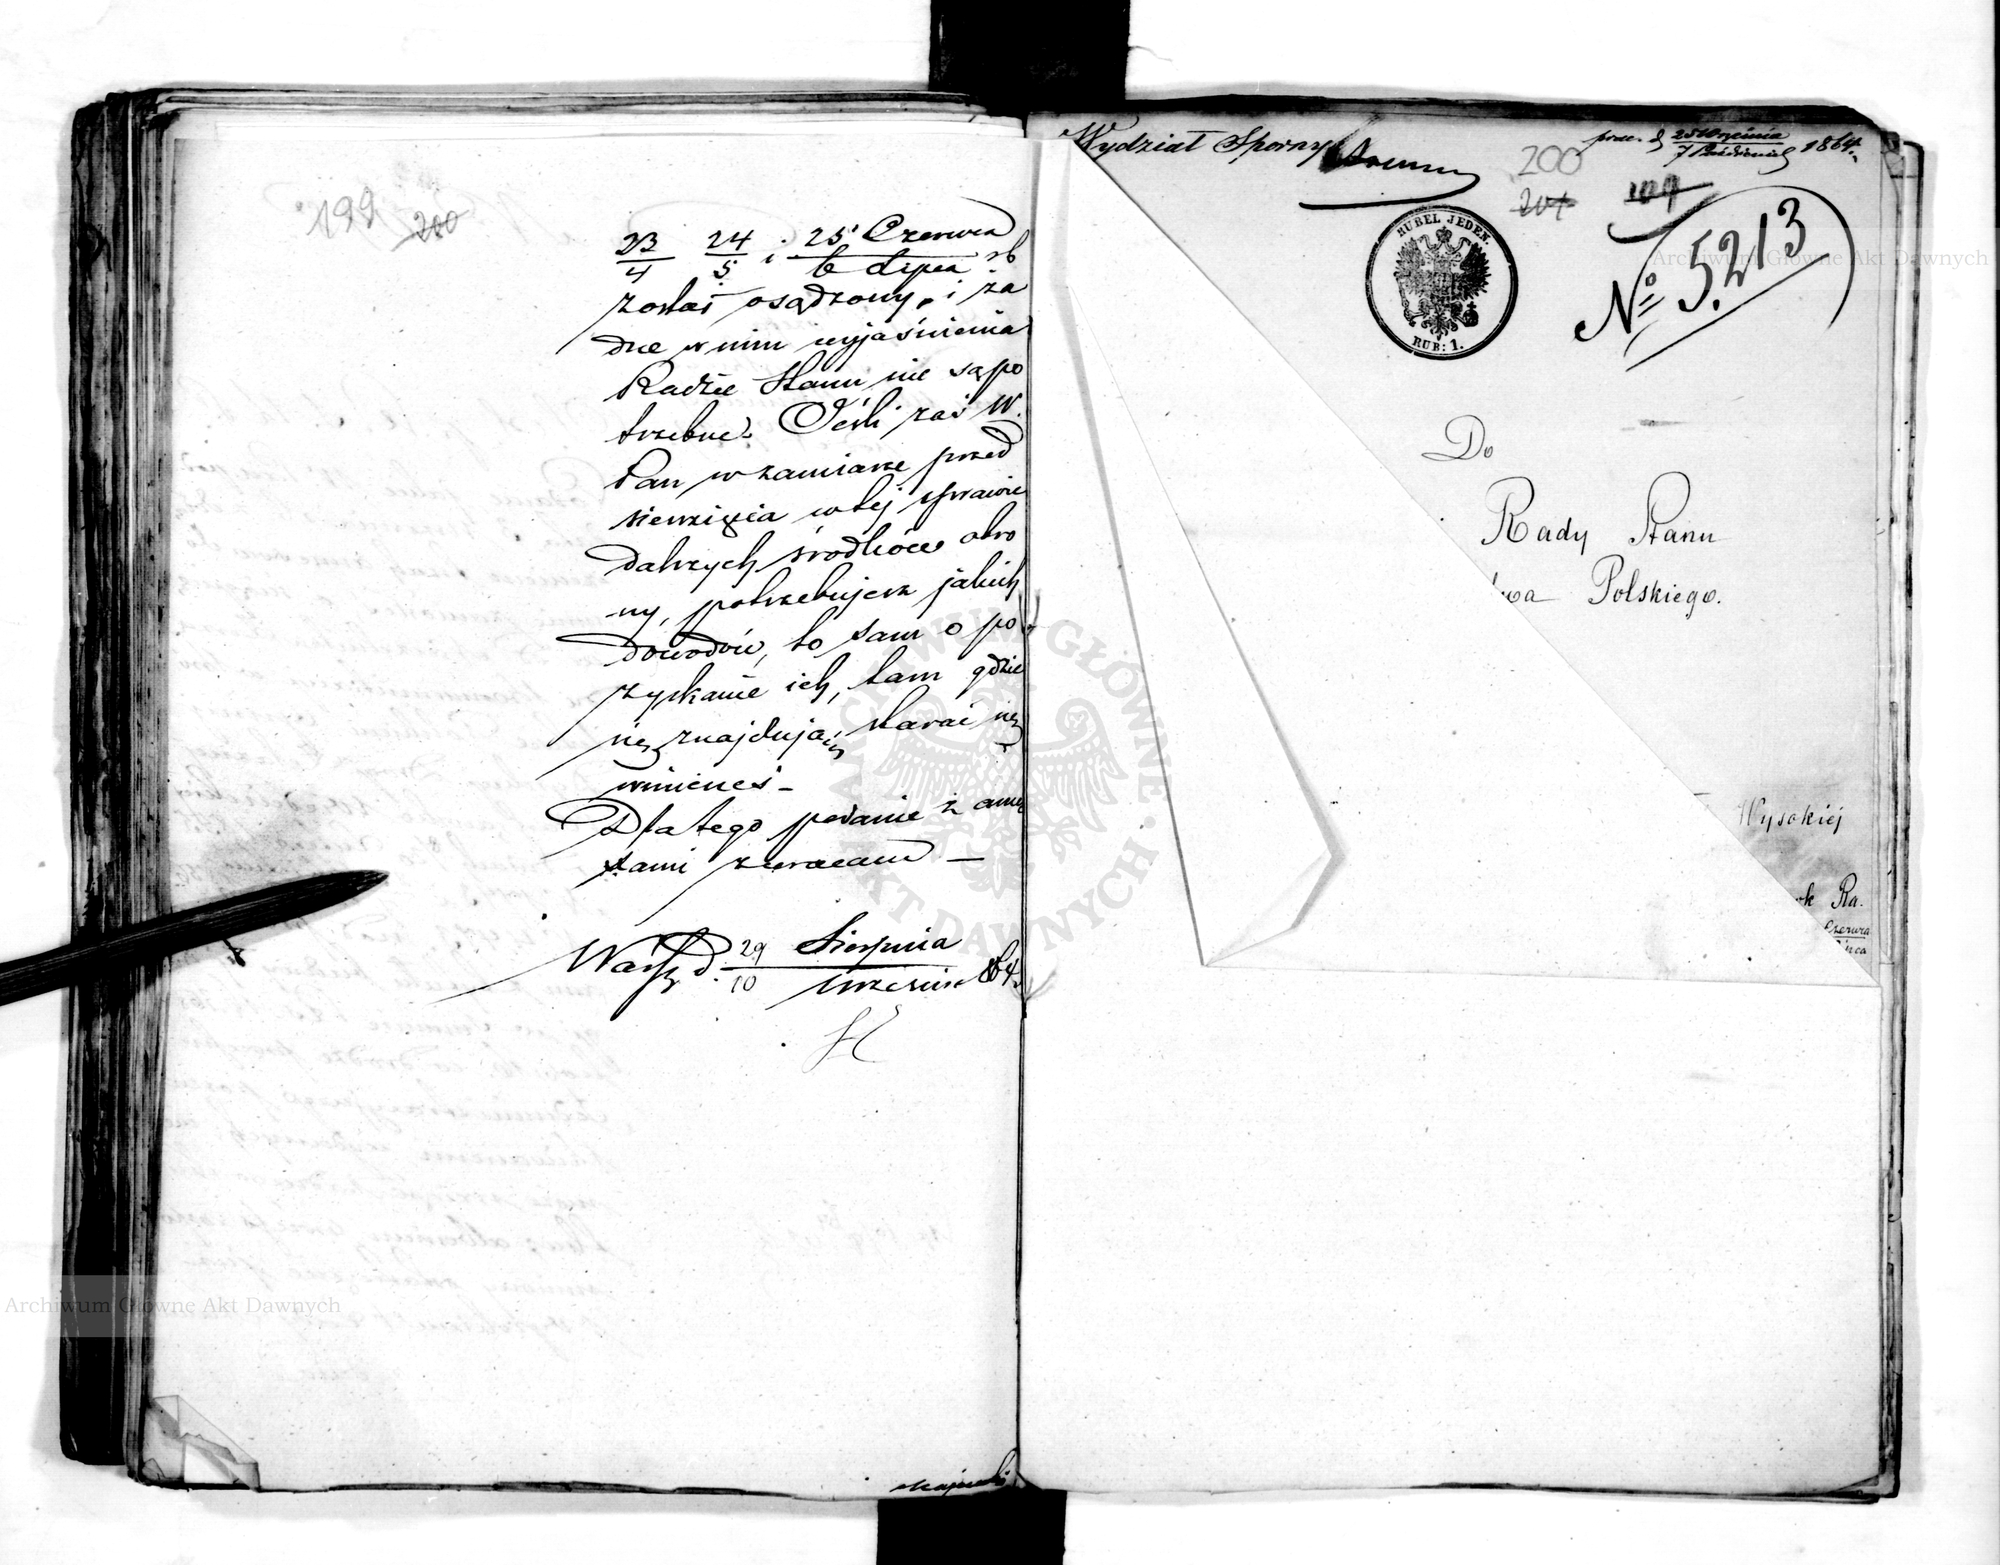 199 200
23/4 24/5 i 25 Czerwca/6 Lipca rb
został osądzony, i ża
dne w nim wyjaśnienia
Radzie Stanu nie są po
trzebne. Jeśli zaś W.
Pan w zamiarze przed
sięwzięcia w tej sprawie
dalszych środków obro
ny, potrzebujesz jakich
dowodów, to sam o po
zyskanie ich, tam gdzie
się znajdują, starać się
winieneś -
Dla tego podanie z anne
xami zwracam —
Warsz d. 29 Sierpnia/10 Września 864
Wydział Sporny
prez. d. 25 Września/7 Października 1864.
200
201 199
RUBEL JEDEN.
RUB: 1.
No 5,213
Do
Rady Stanu
wa Polskiego.
Wysokiej
ok Ra.
Czerwca
Lipca
Archiwum Główne Akt Dawnych
ARCHIWUM GŁÓWNE AKT DAWNYCH
Archiwum Główne Akt Dawnych